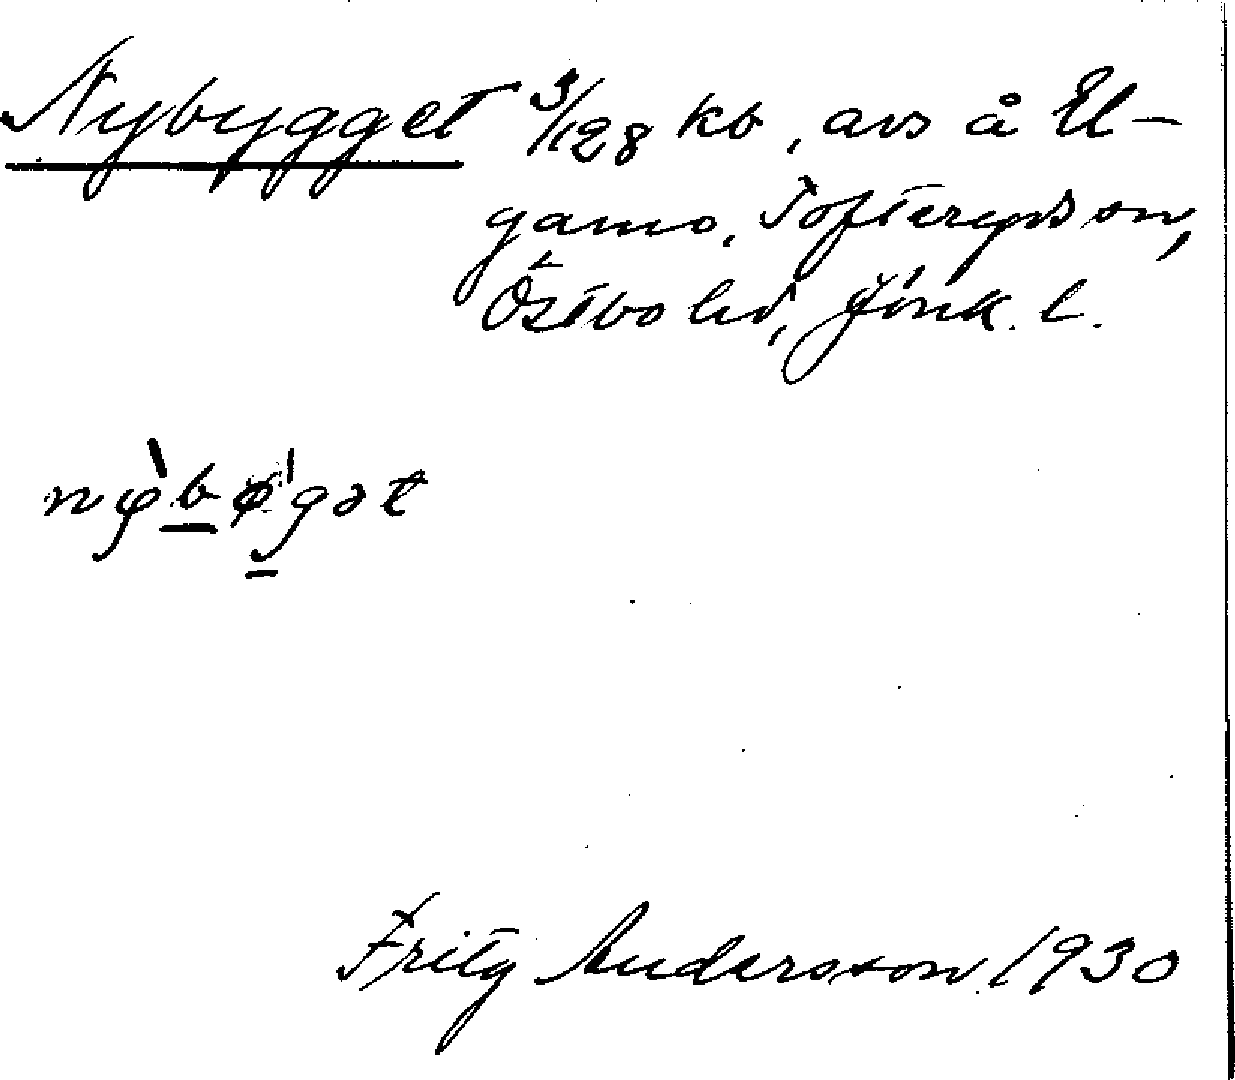 Nybygget 3/128 kb, avs å El-
gamo, Tofteryds sn,
Östbo hd, Jönk. l.
nỳbø̀gət
Fritz Andersson 1930